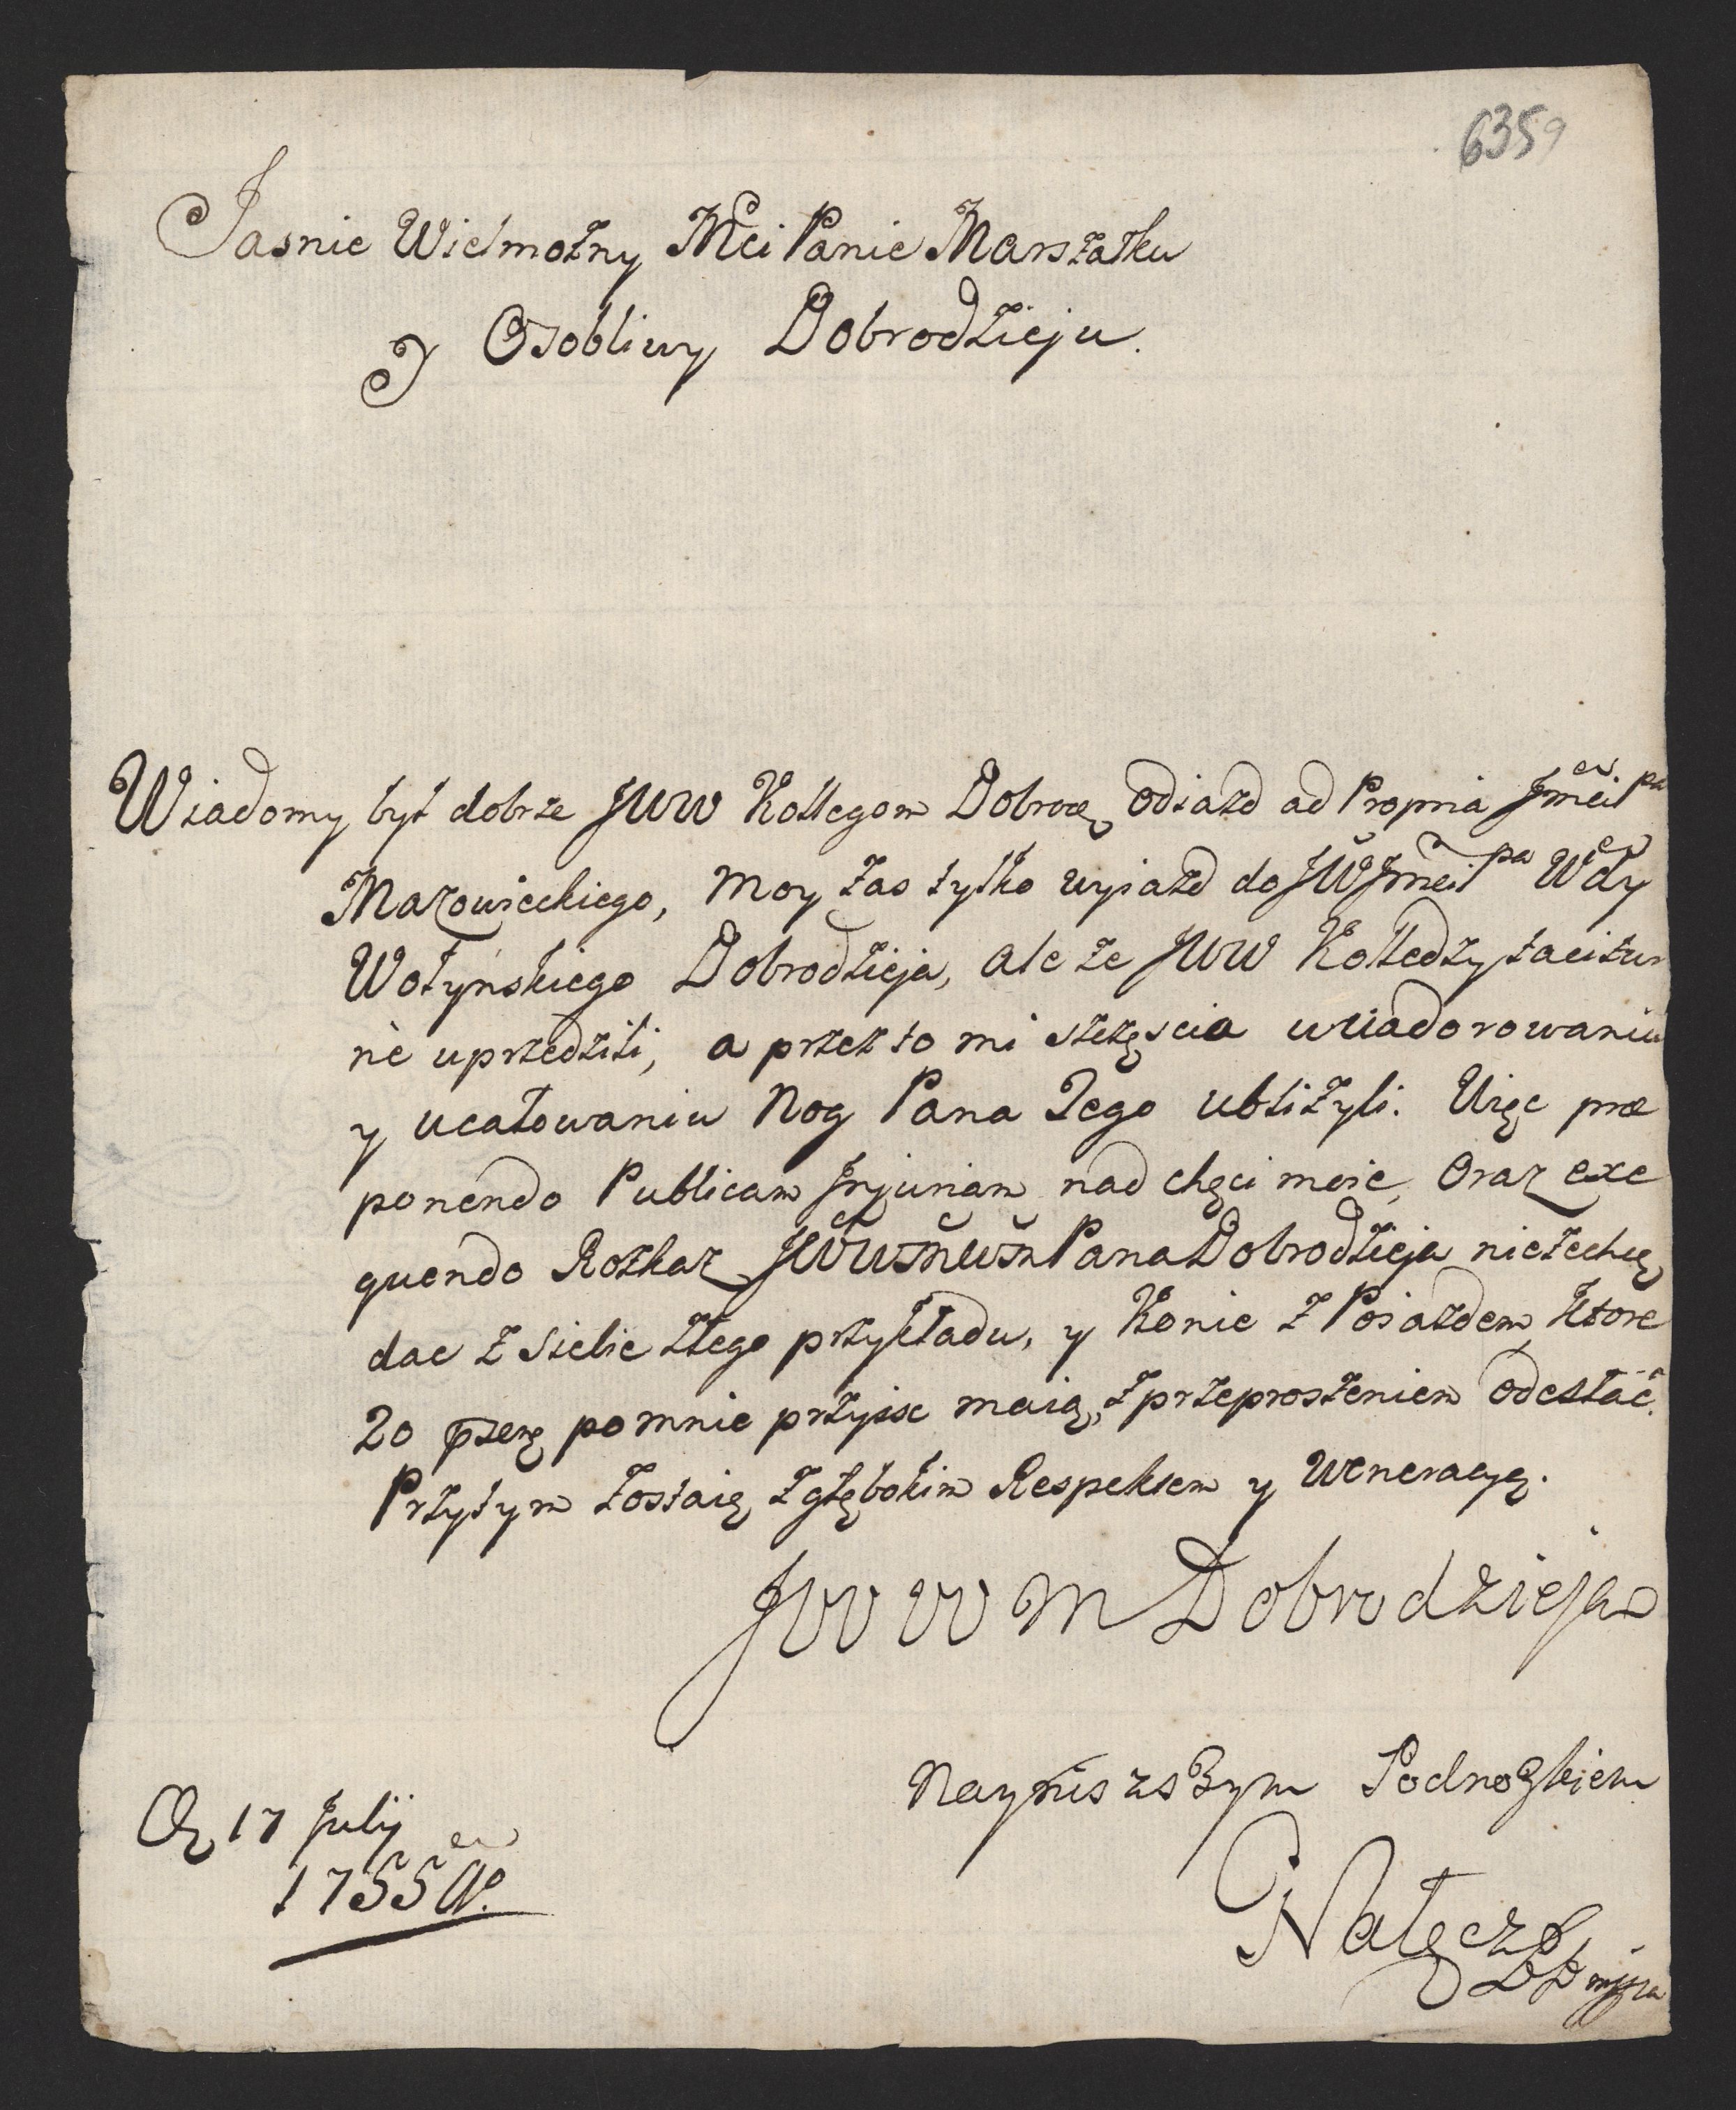 6359
Jasnie Wielmożny Mci Panie Marszałku
y Osobliwy Dobrodzieju.
Wiadomy był dobrze JWW Kollegom Dobrom odiazd ad Propria Jmci pa
Mazowieckiego, moy zas tylko wyiazd do JW Jmci pa Wdy
Wołynskiego Dobrodzieja, ale że JWW Kolledzy tacitur
nè uprzedzili, a przez to mi szczęscia uwiadorowaniu
y ucałowaniu Nog Pana Jego ubliżyli. Więc præ
ponendo Publicam Jnjuriam nad chęci moie, Oraz exe
quendo Rozkaz Pana Dobrodzieja nieżechcę
dac z siebie złego przykładu, y Konie z Poiazdem, ktore
20 po mnie przyisc maią, z przeproszeniem odesłać.
Przytym zostaię z głębokim Respektem y Weneracyą.
JWWM Dobrodzieja
Nayniszszym Podnożkiem
17 Julij
1755 Ao.
Nałęcz